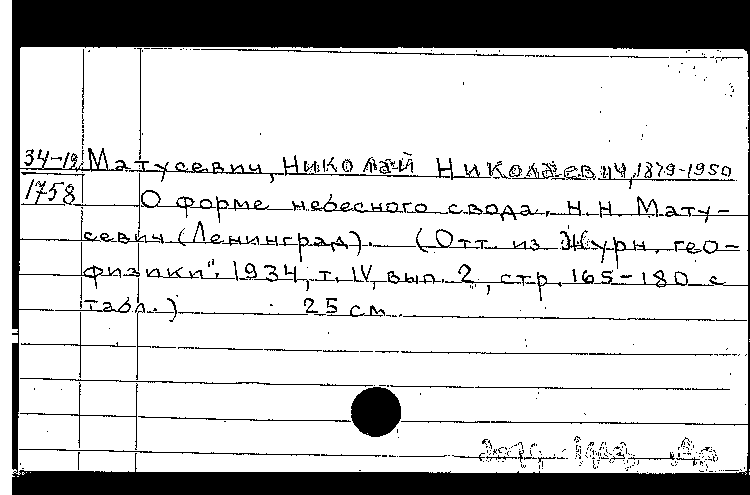 34-19 Матусевич, Николай Николаевич, 1879-1950
1758 О форме небесного свода. Н.Н. Мату-
севич (Ленинград). (Отт. из Журн. гео-
физики". 1934, т. IV, вып. 2, стр. 165-180 с
табл.) 25 см.